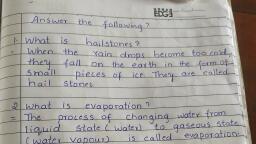 Answer the following?
1. What is hailstones?
- When the rain drops become too cold,
they fall on the earth in the form of
small pieces of ice. They are called
hail stones
2. What is evaporation?
= The process of changing water from
liquid state (water) to gaseous state
(water vapour) is called evaporation